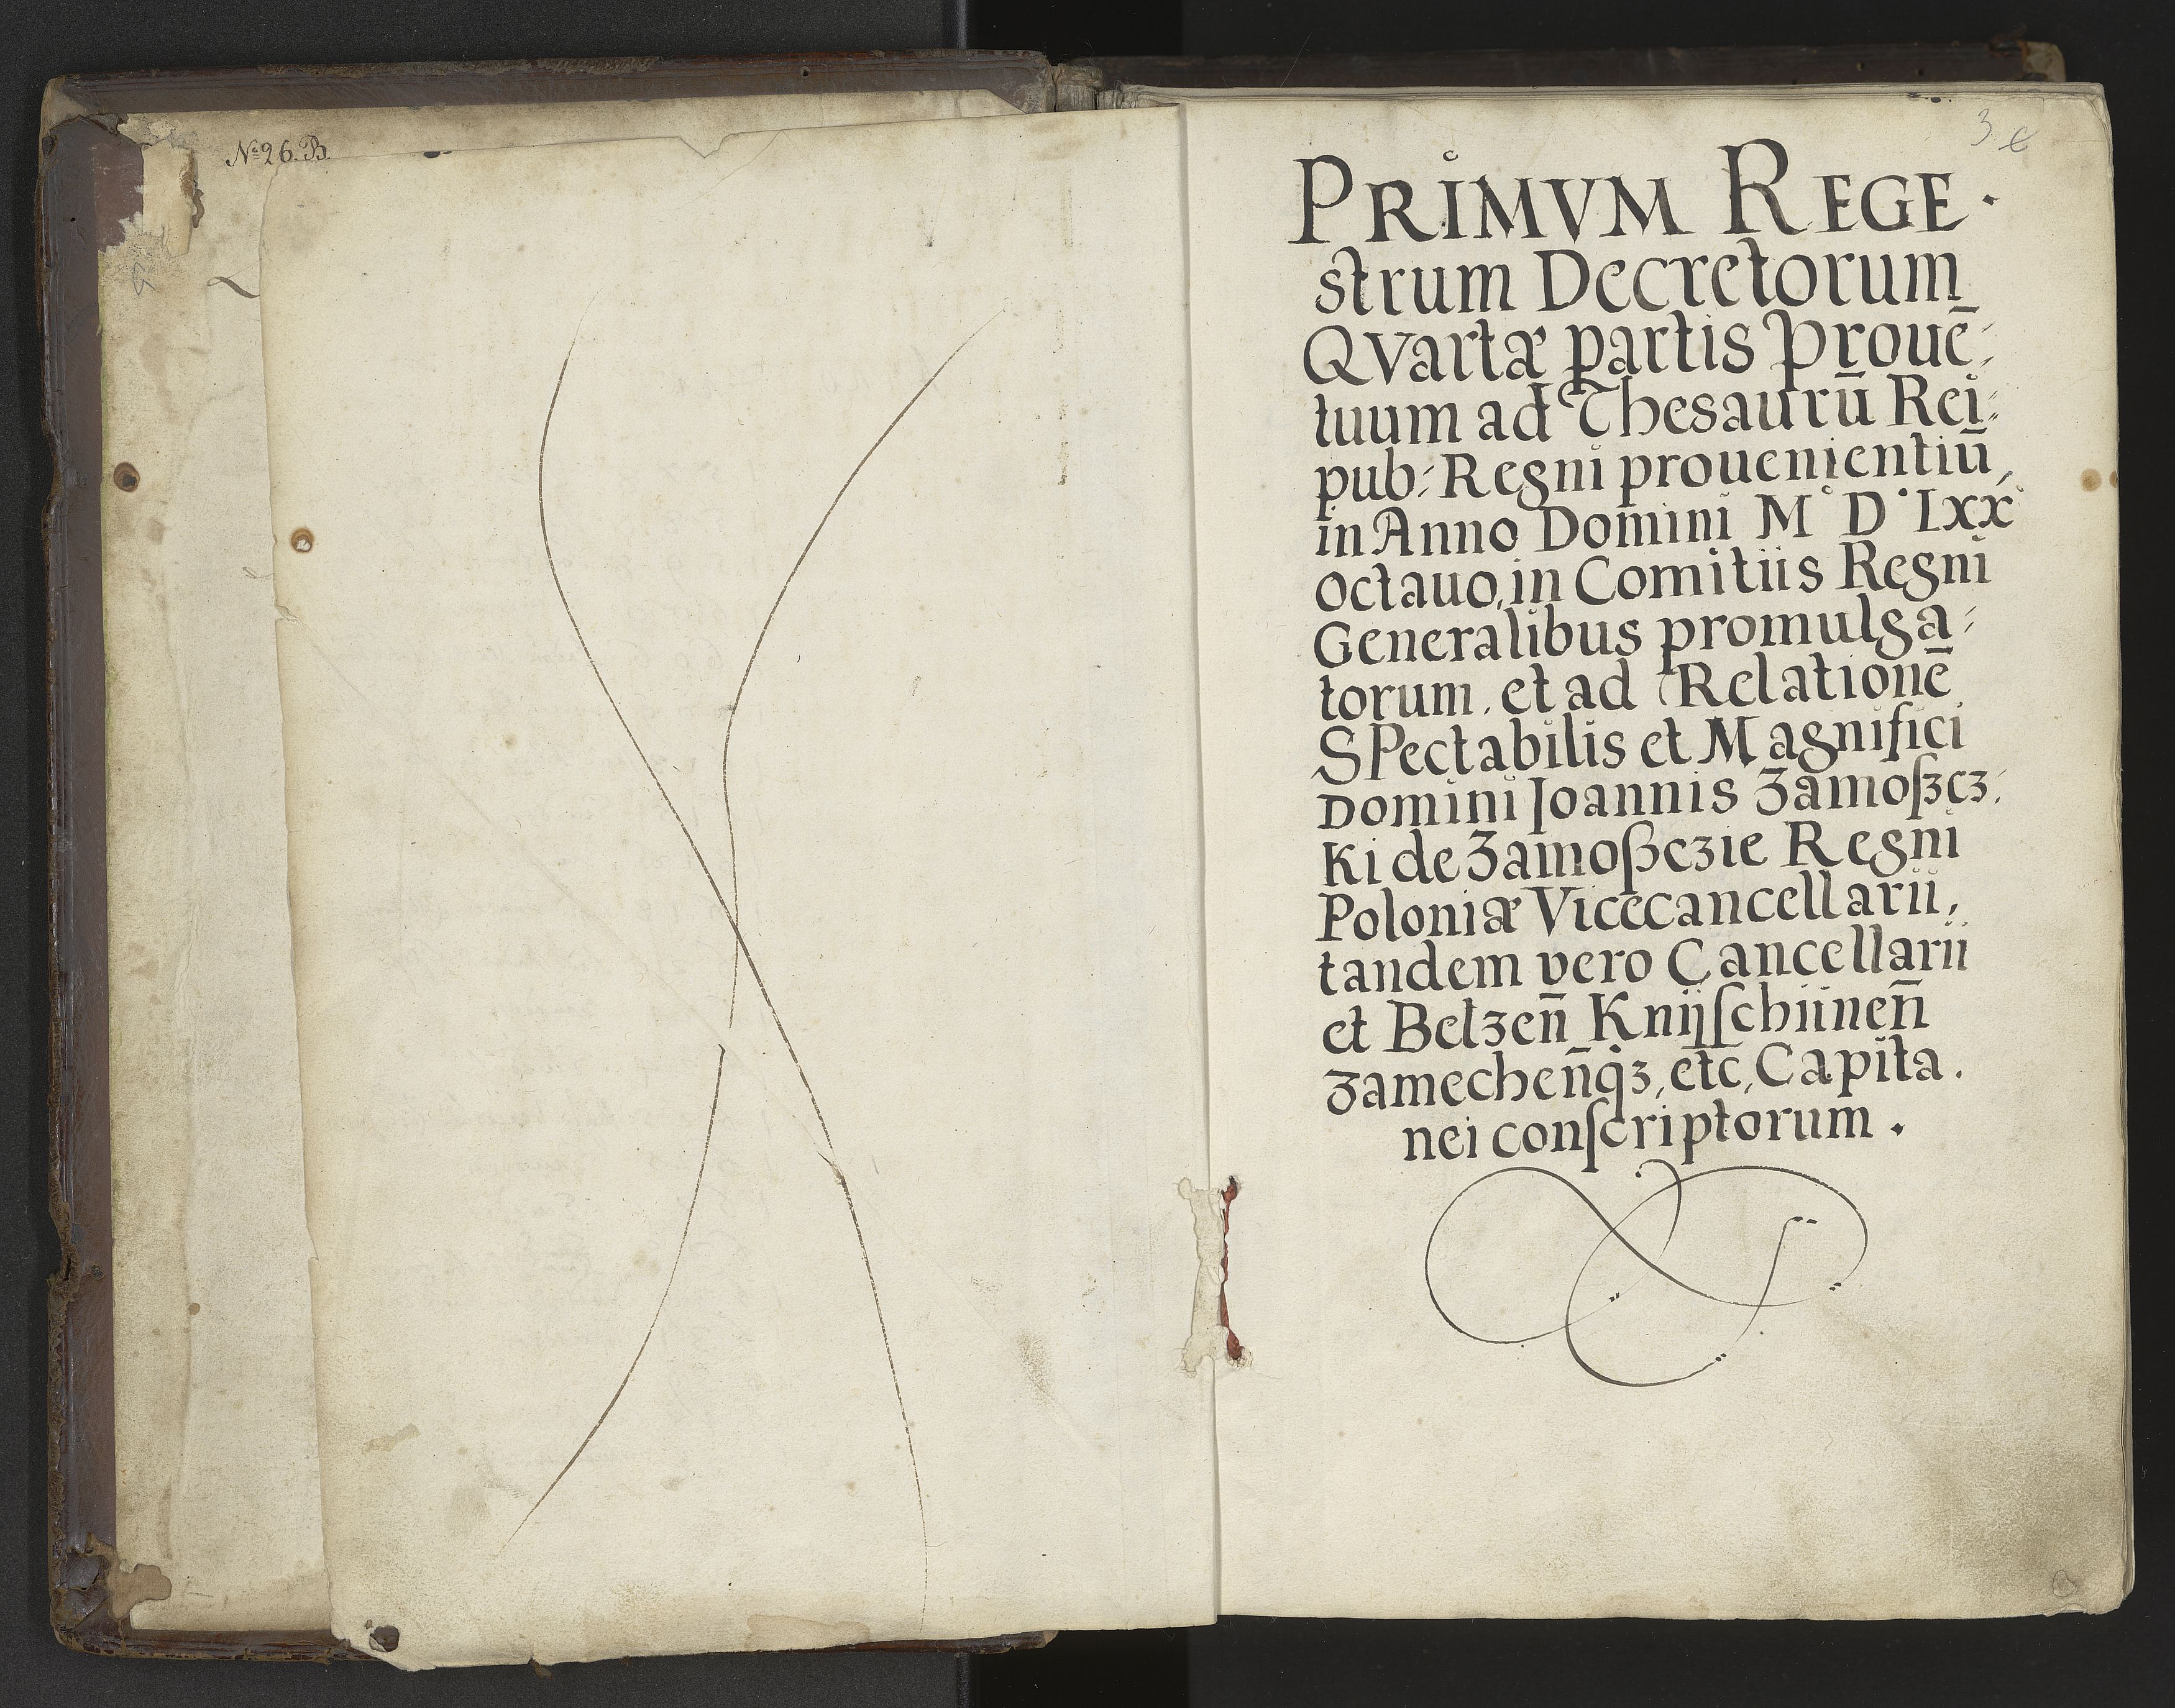 No 26. B.
3
PRIMVM REGE·
strum Decretorum
QVartæ partis Prouē⸗
tuum ad Thesaurū Rei⸗
pub⸗ Regni prouenientiū,
in Anno Domini M D Lxx
octauo, in Comitiis Regni
Generalibus promulga⸗
torum, et ad Relationē
SPectabilis et Magnifici
Domini Joannis Zamoſzcz⸗
Ki de Zamoſzczie Regni
Poloniæ Vicecancellarii,
tandem vero Cancellarii
et Belzen̄ Knijſchiinen̄
Zamechen̄q̃ꝫ, etc, Capita.
nei conſcriptorum.